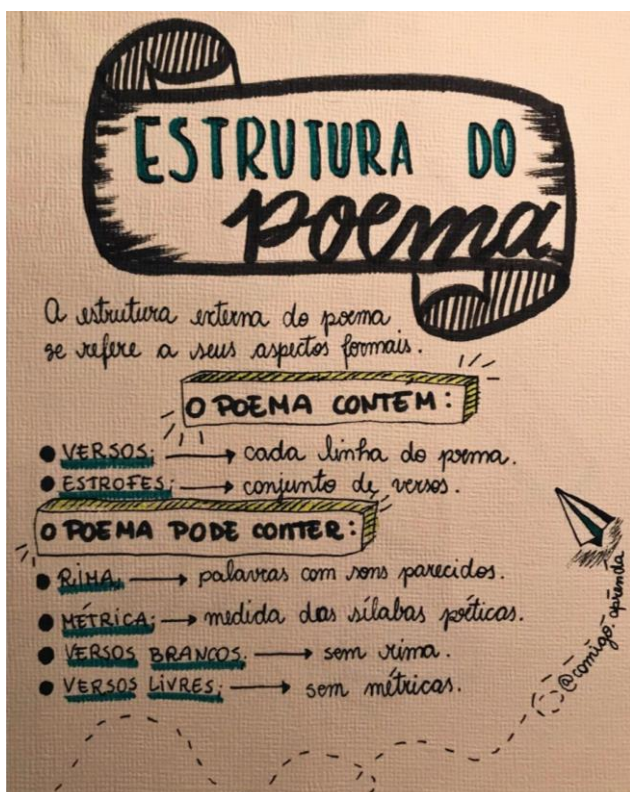 ESTRUTURA DO
poema
A estrutura externa do poema
se refere a seus aspectos formais.
O POEMA CONTÉM:
VERSOS: → cada linha do poema.
ESTROFES: → conjunto de versos.
O POEMA PODE CONTER:
RIMA: → palavras com sons parecidos.
MÉTRICA: → medida das sílabas poéticas.
VERSOS BRANCOS: → sem rima.
VERSOS LIVRES: → sem métricas.
@comigo_aprenda